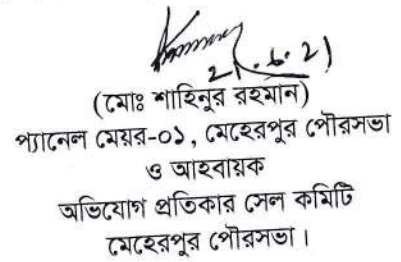 21.6.21
(মোঃ শাহিনুর রহমান)
প্যানেল মেয়র-০১, মেহেরপুর পৌরসভা
ও আহবায়ক
অভিযোগ প্রতিকার সেল কমিটি
মেহেরপুর পৌরসভা।